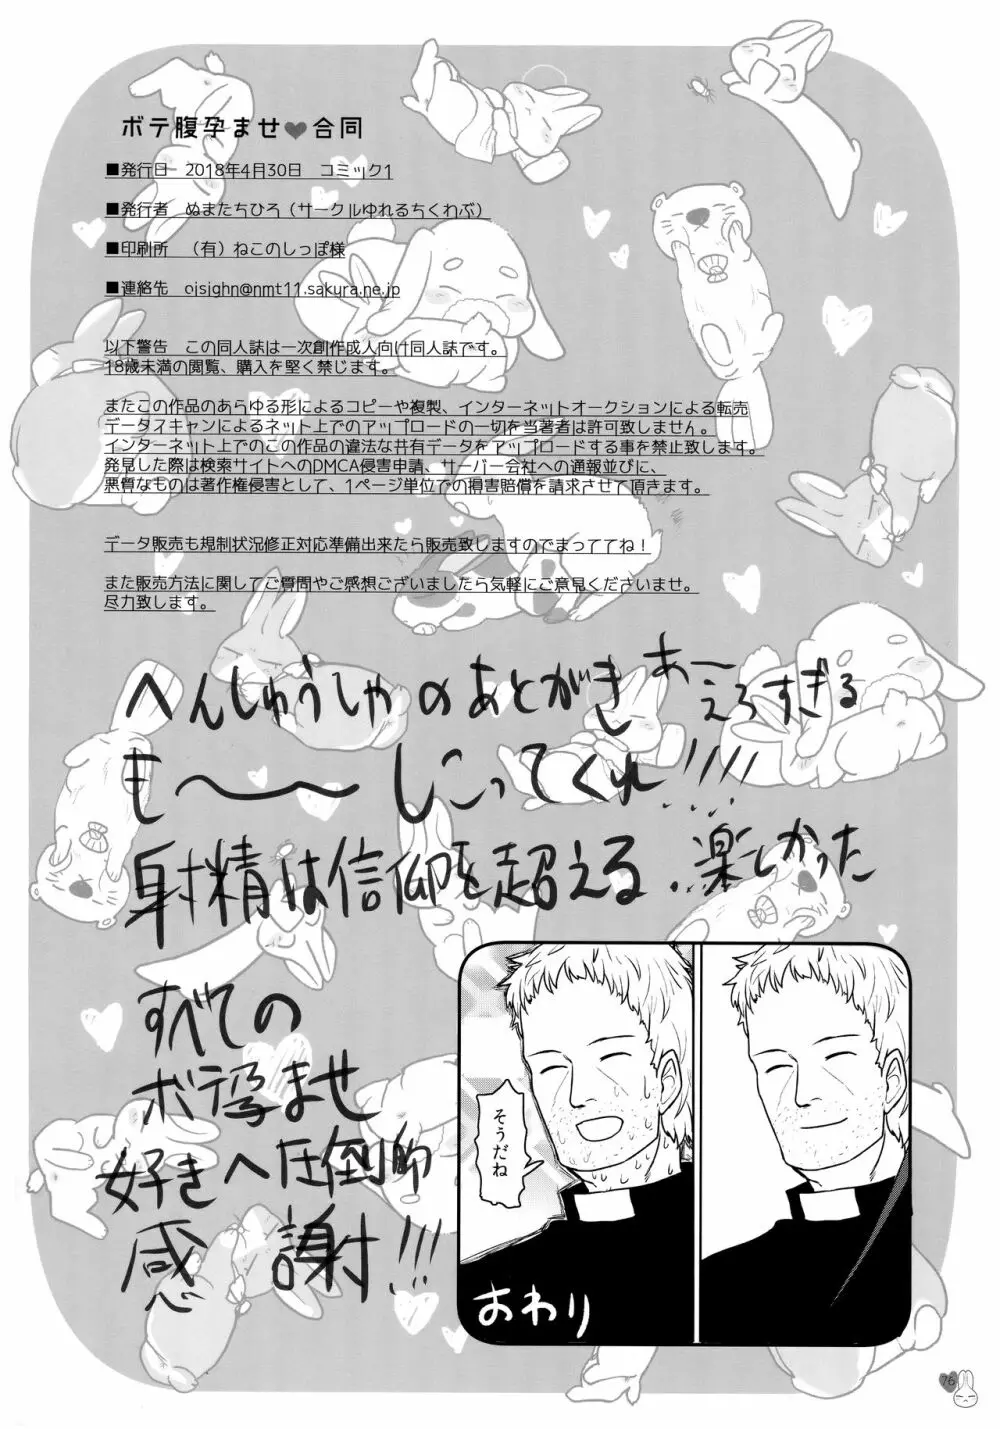 ボテ腹孕ませ♥合同
■発行日　2018年4月30日　コミック1
■発行者　ぬまたちひろ（サークルゆれるちくわぶ）
■印刷所　（有）ねこのしっぽ様
■連絡先　oisighn@nmt11.sakura.ne.jp
以下警告　この同人誌は一次創作成人向け同人誌です。
18歳未満の閲覧、購入を堅く禁じます。
またこの作品のあらゆる形によるコピーや複製、インターネットオークションによる転売
データスキャンによるネット上でのアップロードの一切を当著者は許可致しません。
インターネット上でのこの作品の違法な共有データをアップロードする事を禁止致します。
発見した際は検索サイトへのDMCA侵害申請、サーバー会社への通報並びに、
悪質なものは著作権侵害として、1ページ単位での損害賠償を請求させて頂きます。
データ販売も規制状況修正対応準備出来たら販売致しますのでまっててね！
また販売方法に関してご質問やご感想ございましたら気軽にご意見くださいませ。
尽力致します。
へんしゅうしゃのあとがき あーえろすぎる
も〜〜しこってくれ!!!!
射精は信仰を超える.楽しかった
すべての
ボテ孕ませ
好きへ圧倒的
感謝!!!
そうだね
おわり
76